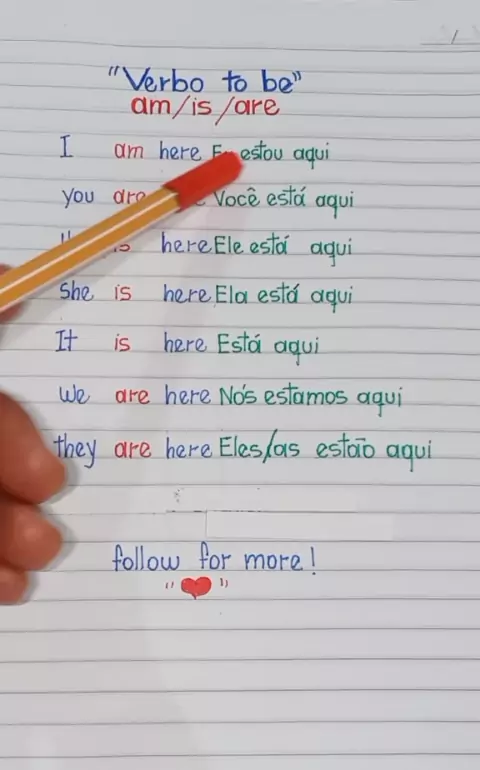 "Verbo to be"
am/is/are
I am here Eu estou aqui
you are Você está aqui
is here Ele está aqui
She is here Ela está aqui
It is here Está aqui
We are here Nós estamos aqui
they are here Eles/as estão aqui
follow for more!